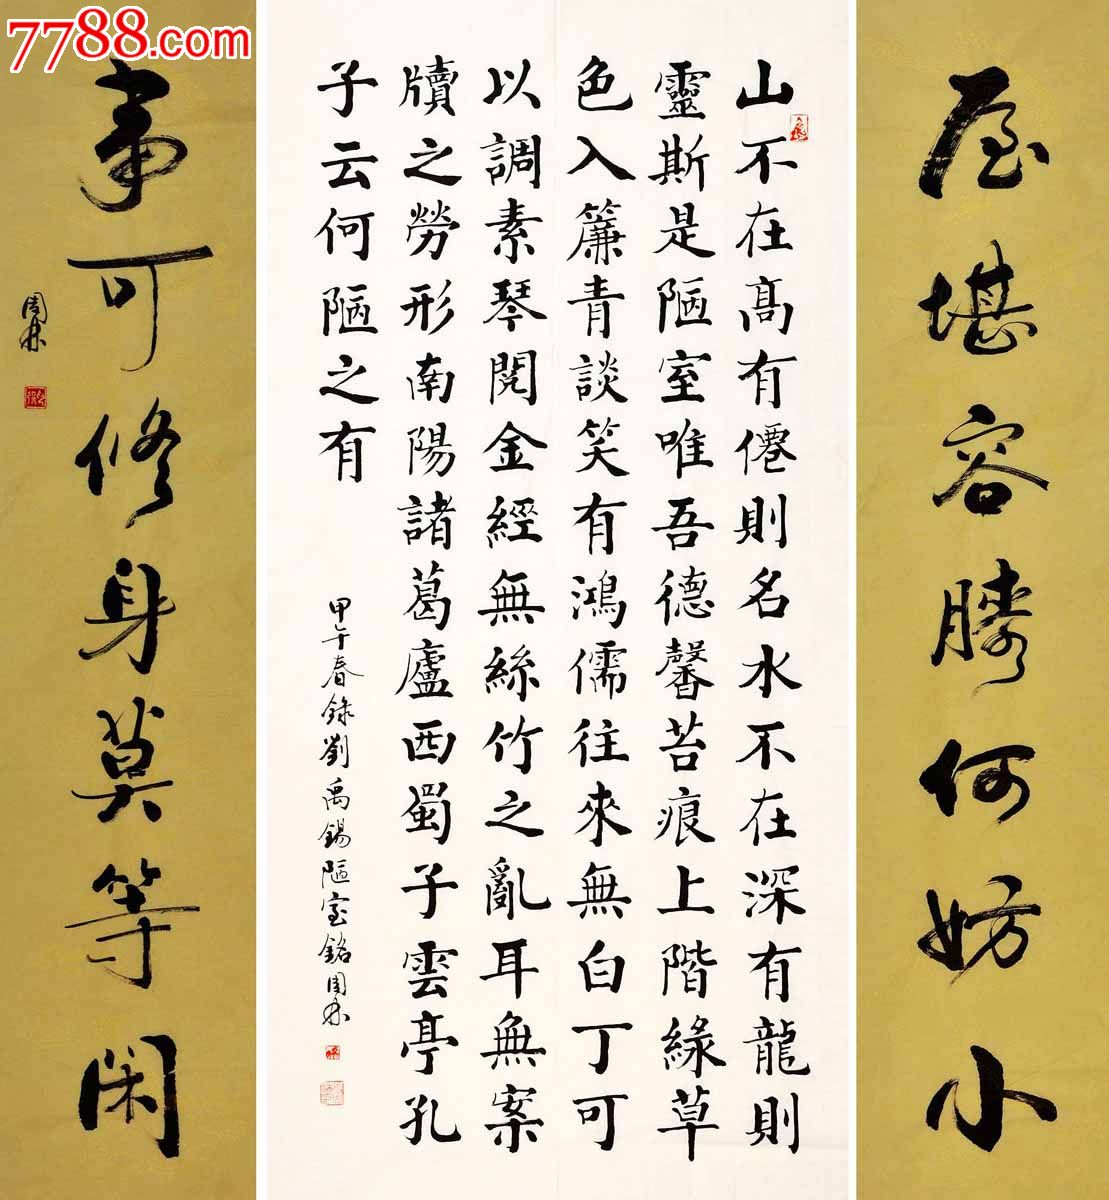 7788.com
屋堪容膝何妨小
山不在髙有僊則名水不在深有龍則
靈斯是陋室唯吾德馨苔痕上階緣草
色入簾青談笑有鴻儒往來無白丁可
以調素琴閱金經無絲竹之亂耳無案
牘之勞形南陽諸葛廬西蜀子雲亭孔
子云何陋之有
甲午春錄劉禹錫陋室銘周林
事可修身莫等閑
周林